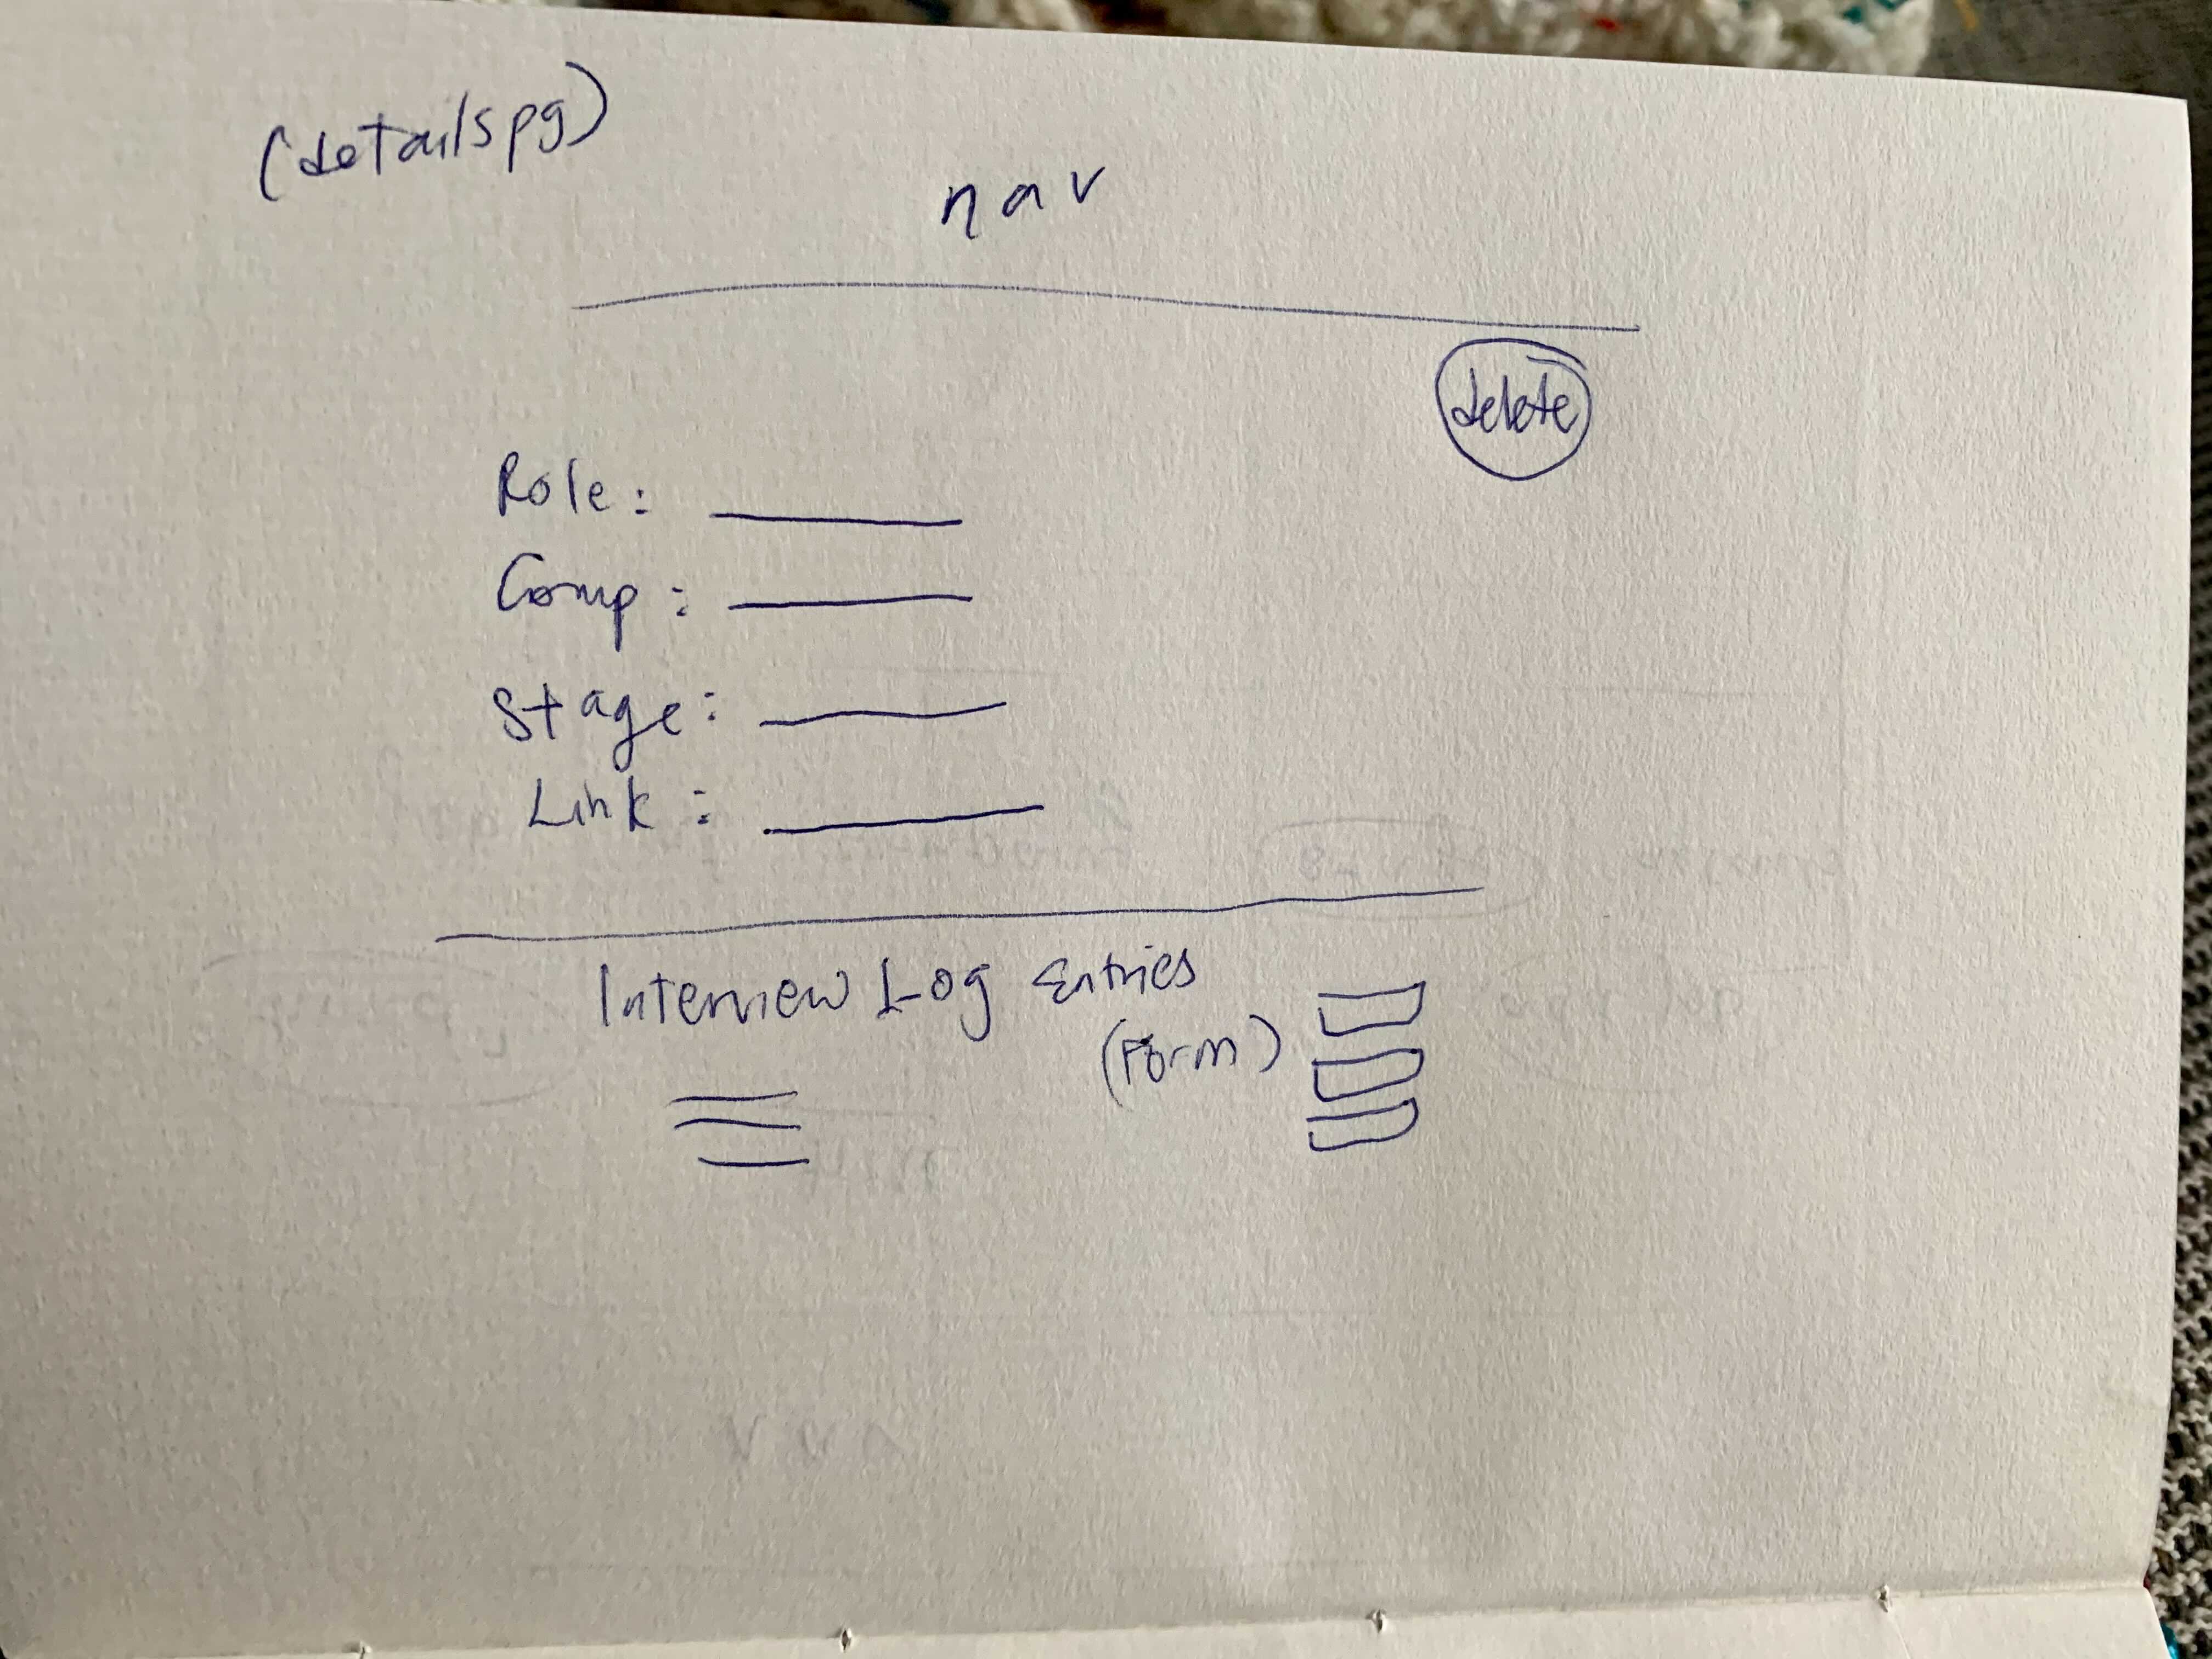 (detailspg)
nav
delete
Role:
Comp:
Stage:
Link:
Interview Log Entries
(Form)